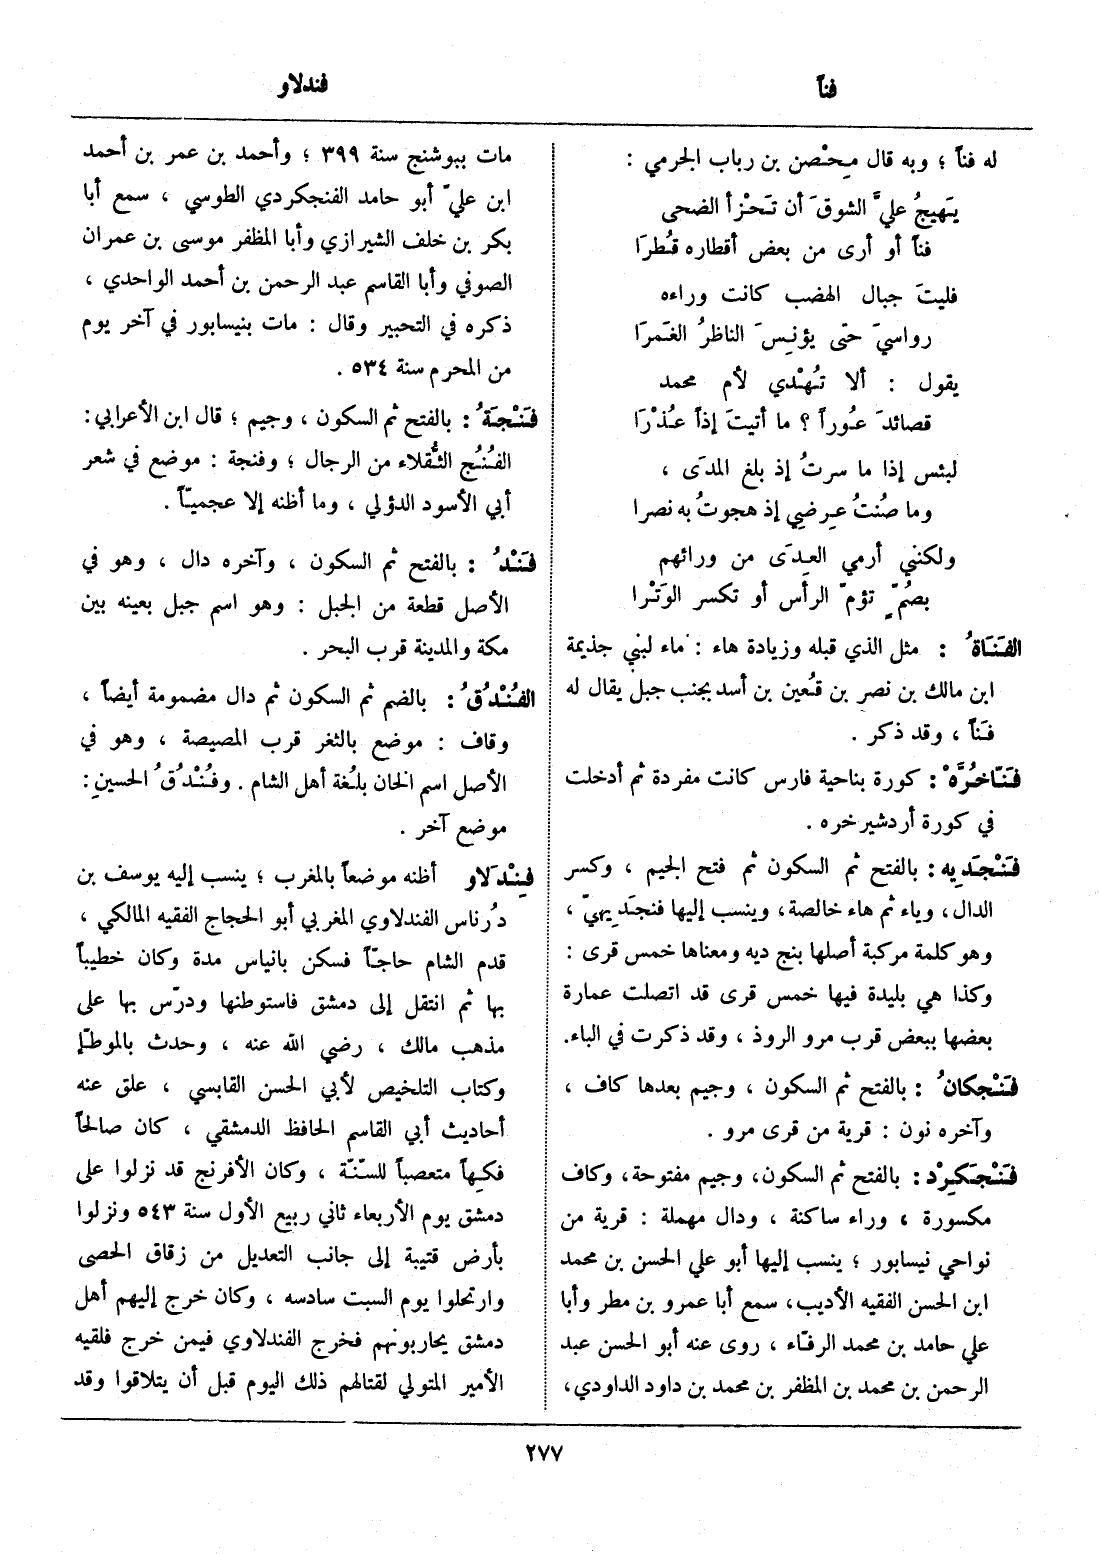 فنأ
فندلاو
له فنأ ؛ وبه قال مِحْصن بن رباب الجرمي :
يَهيجُ عليَّ الشوقَ أن تَحْزأ الضحى
فنأ أو أرى من بعض أقطاره قُطرَا
فليتَ جبال الهضب كانت وراءه
رواسيَ حتى يؤنِسَ الناظرُ الغَمرَا
يقول : ألا تُهْدي لأم محمد
قصائدَ عُوراً ؟ ما أتيتَ إذاً عُذْرَا
لبئس إذا ما سرتُ إذ بلغ المدَى ،
وما صُنتُ عِرضي إذ هجوتُ به نصرا
ولكنني أرمي العِدَى من ورائهم
بصُمٍّ تؤمّ الرأس أو تكسر الوَتْرا
الفَنَاةُ : مثل الذي قبله وزيادة هاء : ماء لبني جذيمة
ابن مالك بن نصر بن قُعين بن أسد بجنب جبل يقال له
فَنأ ، وقد ذكر .
فَنّاخُرَّهْ : كورة بناحية فارس كانت مفردة ثم أدخلت
في كورة أردشير خره .
فَنْجَدِيه : بالفتح ثم السكون ثم فتح الجيم ، وكسر
الدال ، وياء ثم هاء خالصة ، وينسب إليها فنجَديهيّ ،
وهو كلمة مركبة أصلها بنج ديه ومعناها خمس قرى :
وكذا هي بليدة فيها خمس قرى قد اتصلت عمارة
بعضها ببعض قرب مرو الروذ ، وقد ذكرت في الباء.
فَنْجكانُ : بالفتح ثم السكون ، وجيم بعدها كاف ،
وآخره نون : قرية من قرى مرو .
فَنْجَكِرْد : بالفتح ثم السكون، وجيم مفتوحة، وكاف
مكسورة ، وراء ساكنة ، ودال مهملة : قرية من
نواحي نيسابور ؛ ينسب إليها أبو علي الحسن بن محمد
ابن الحسن الفقيه الأديب، سمع أبا عمرو بن مطر وأبا
علي حامد بن محمد الرفّاء ، روى عنه أبو الحسن عبد
الرحمن بن محمد بن المظفر بن محمد بن داود الداودي،
مات ببوشنج سنة ٣٩٩ ؛ وأحمد بن عمر بن أحمد
ابن عليّ أبو حامد الفنجكردي الطوسي ، سمع أبا
بكر بن خلف الشيرازي وأبا المظفر موسى بن عمران
الصوفي وأبا القاسم عبد الرحمن بن أحمد الواحدي ،
ذكره في التحبير وقال : مات بنيسابور في آخر يوم
من المحرم سنة ٥٣٤ .
فَنْجَةُ : بالفتح ثم السكون ، وجيم ؛ قال ابن الأعرابي :
الفُنُج الثُّقلاء من الرجال ؛ وفنجة : موضع في شعر
أبي الأسود الدؤلي ، وما أظنه إلا عجميّاً .
فَنْدُ : بالفتح ثم السكون ، وآخره دال ، وهو في
الأصل قطعة من الجبل : وهو اسم جبل بعينه بين
مكة والمدينة قرب البحر .
الفُنْدُقُ : بالضم ثم السكون ثم دال مضمومة أيضاً ،
وقاف : موضع بالثغر قرب المصيصة ، وهو في
الأصل اسم الخان بلُغة أهل الشام . وفُنْدُقُ الحسينِ :
موضع آخر .
فِنْدَلاو أظنه موضعاً بالمغرب ؛ ينسب إليه يوسف بن
دُرناس الفندلاوي المغربي أبو الحجاج الفقيه المالكي ،
قدم الشام حاجّاً فسكن بانياس مدة وكان خطيباً
بها ثم انتقل إلى دمشق فاستوطنها ودرّس بها على
مذهب مالك ، رضي الله عنه ، وحدث بالموطّإ
وكتاب التلخيص لأبي الحسن القابسي ، علق عنه
أحاديث أبي القاسم الحافظ الدمشقي ، كان صالحاً
فكِهاً متعصباً للسّنّة ، وكان الأفرنج قد نزلوا على
دمشق يوم الأربعاء ثاني ربيع الأول سنة ٥٤٣ ونزلوا
بأرض قتيبة إلى جانب التعديل من زقاق الحصى
وارتحلوا يوم السبت سادسه ، وكان خرج إليهم أهل
دمشق يحاربونهم فخرج الفندلاوي فيمن خرج فلقيه
الأمير المتولي لقتالهم ذلك اليوم قبل أن يتلاقوا وقد
٢٧٧